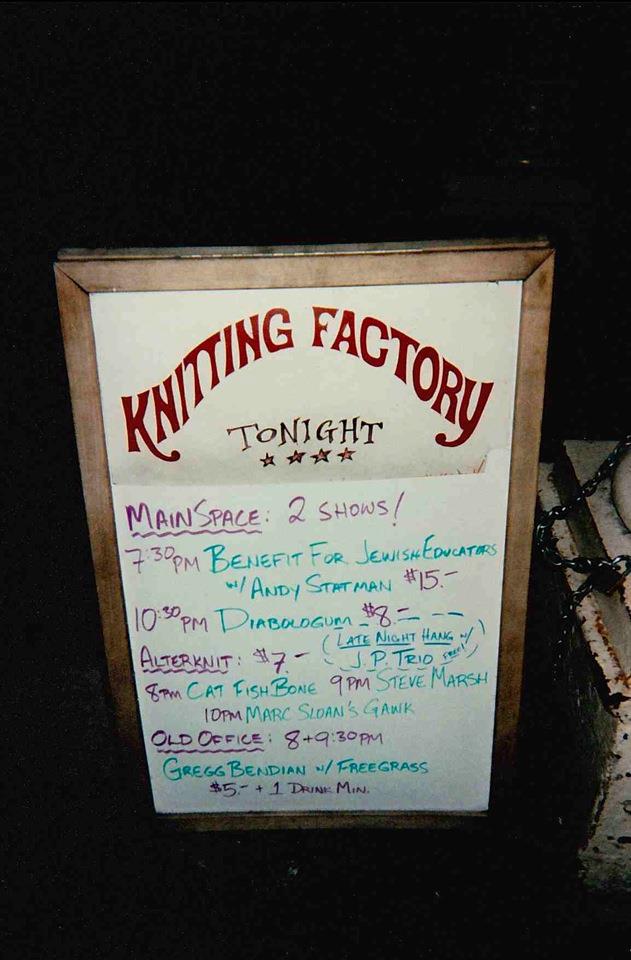 KNITTING FACTORY
TONIGHT
MAINSPACE: 2 SHOWS!
7:30PM BENEFIT FOR JEWISH EDUCATORS
W/ ANDY STATMAN $15.-
10:30PM DIABOLOGUM $8.-
(LATE NIGHT HANG W/
J.P. TRIO FREE!)
ALTERKNIT: $7.-
8PM CAT FISH BONE 9PM STEVE MARSH
10PM MARC SLOAN'S GAWK
OLD OFFICE: 8+9:30PM
GREGG BENDIAN W/ FREEGRASS
$5.- + 1 DRINK MIN.